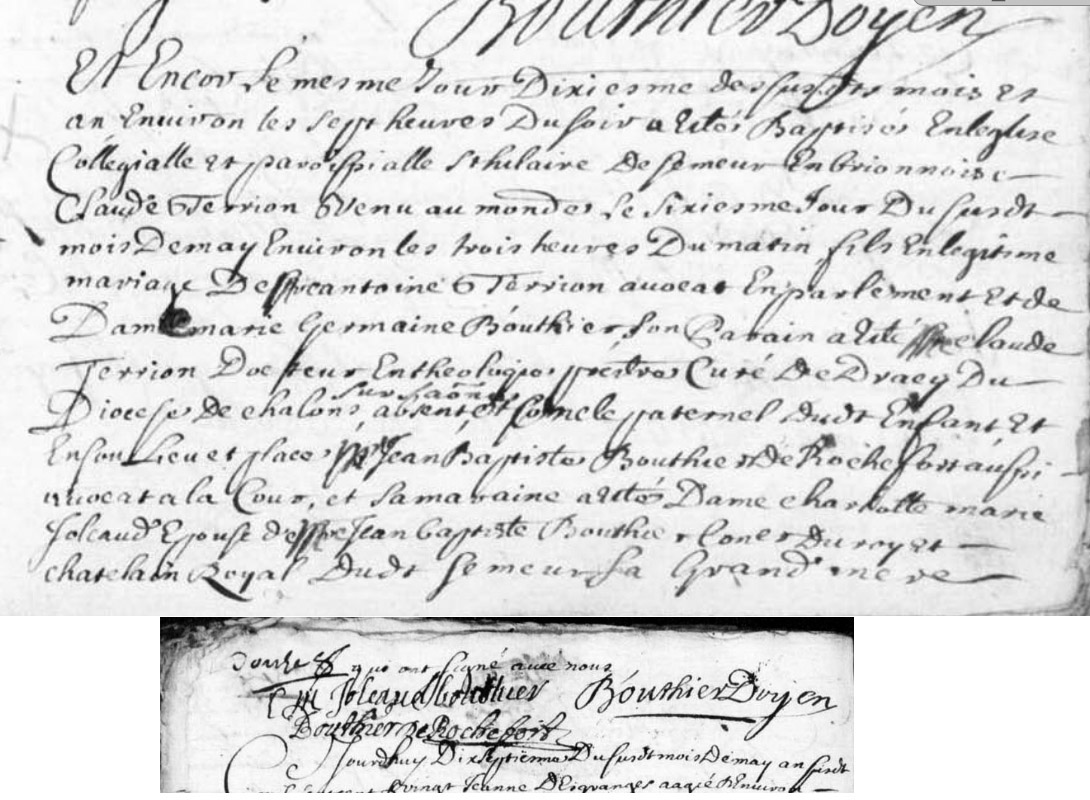 Bouthier Doyen
Et Encor le mesme Jour Dixiesme des susdits mois et
an Environ les sept heures Du soir a Estés Baptisés En leglise
Collegialle et paroissialle St hilaire De semeur En brionnois
Claude Terrion Venu au mondes le sixiesme Jour Du susdt
mois De may Environ les trois heures Du matin fils En legitisme
mariage De antoine Terrion avocat En parlement Et de
Dame marie Germaine Bouthier, son Parain a Esté Claude
Terrion Docteur En theologie prestre Curé De Dracy Du
sur saône
Diocese De chalons absent, et oncle paternel dudt Enfant, Et
En son Lieu et place Jean Baptiste Bouthier de Rochefort aussi
avocat a la Cour, et sa maraine a Estés Dame charlotte marie
Joleaud Epouse de Jean baptiste Bouthier Coner Du roy et
chatelain Royal Dudt semeur sa Grand mere
qui ont signé avec nous
M Joleaud bouthier Bouthier Doyen
Bouthier De Rochefort
Jourdhuy Dixseptiesme Du susdt mois De may an susdt
vingt Jeanne agée Denviron